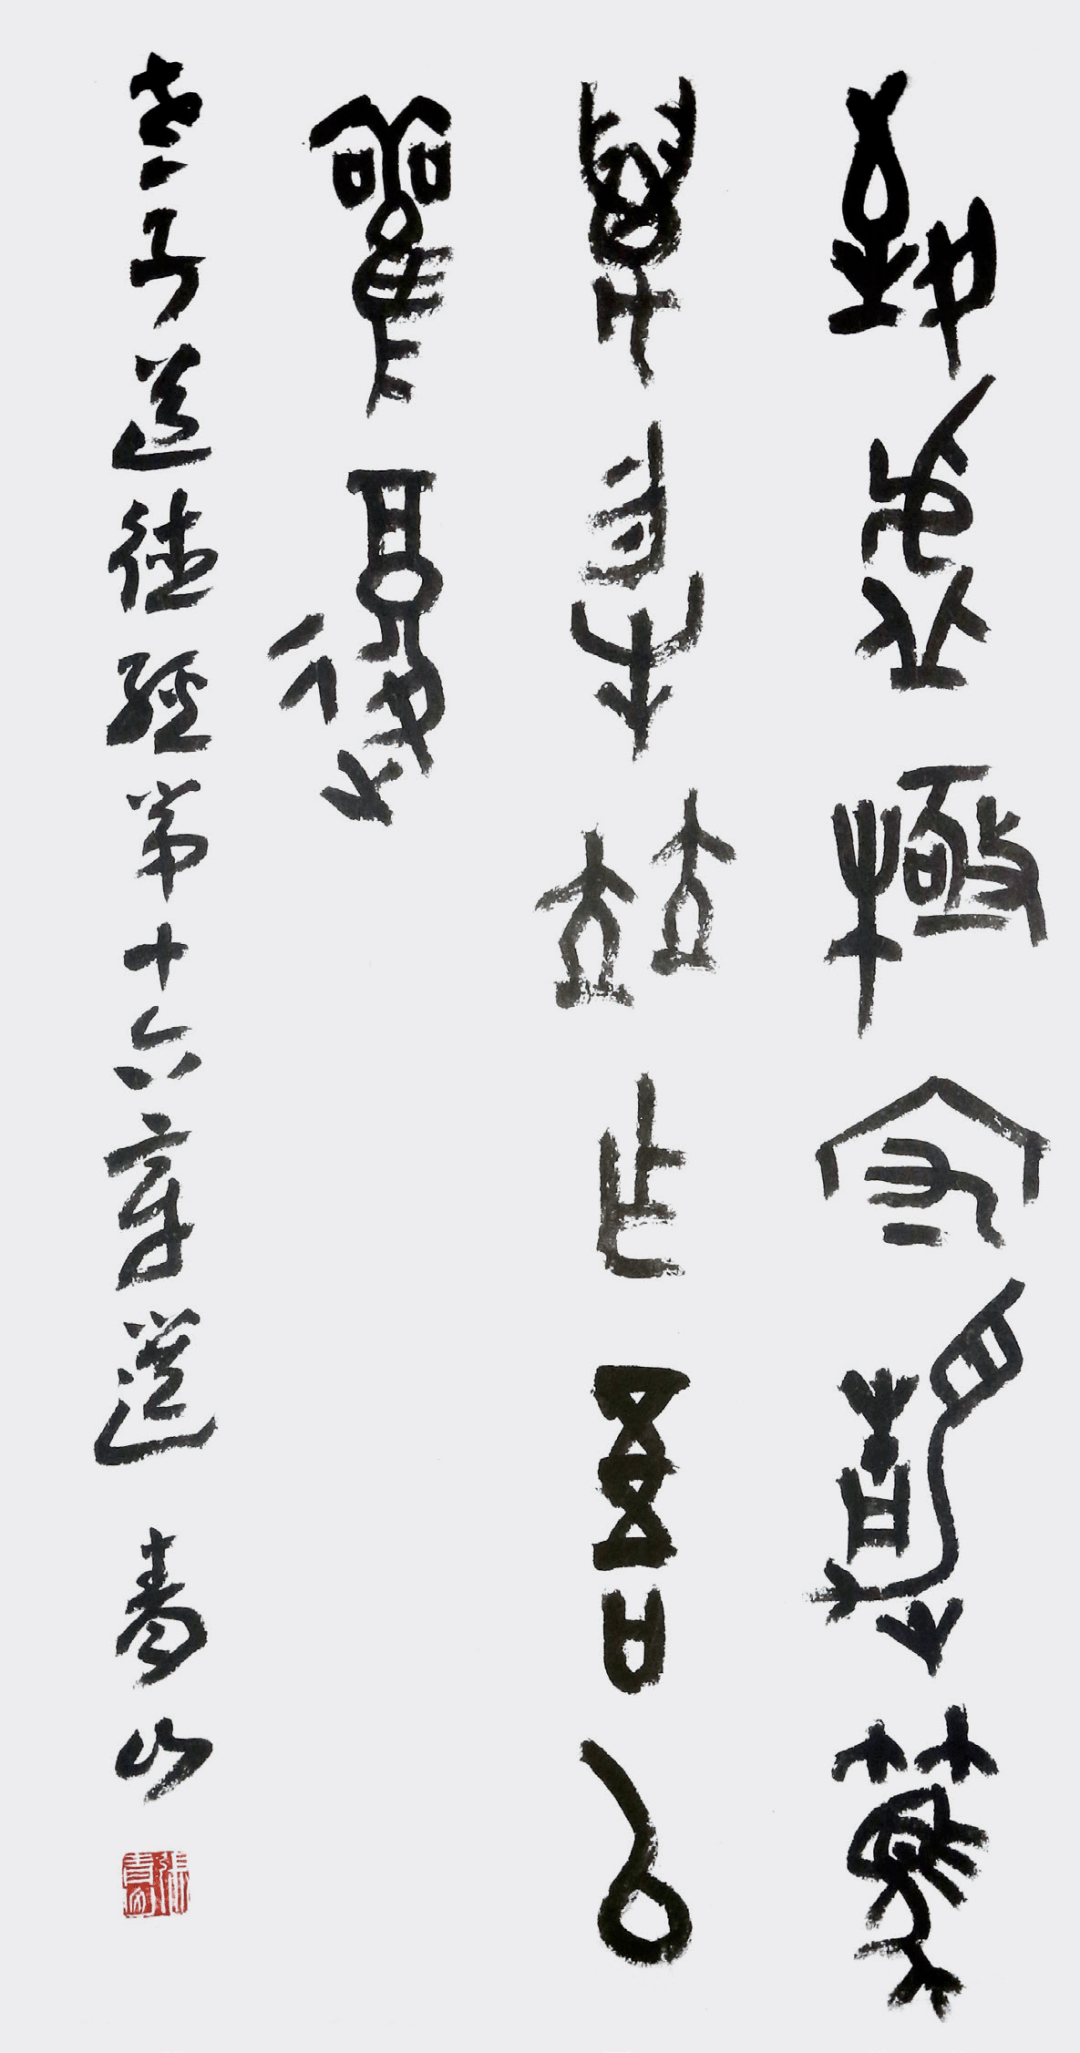 致虚極守静篤
萬物並作吾以
觀復
老子道德經第十六章選 青山